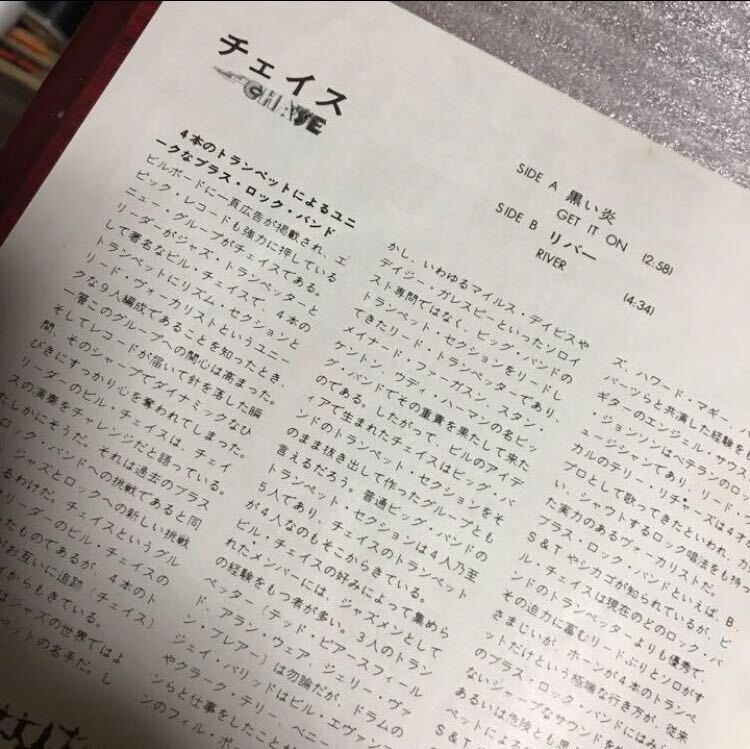 チェイス
CHASE
SIDE A 黒い炎
GET IT ON (2:58)
SIDE B リバー
RIVER (4:34)
4本のトランペットによるユニ
ークなブラス・ロック・バンド
ビルボードに一頁広告が掲載され、エ
ピック・レコードも強力に押している
ニュー・グループがチェイスである。
リーダーがジャズ・トランペッターと
して著名なビル・チェイスで、4本の
トランペットにリズム・セクションと
リード・ヴォーカリストというユニー
クな9人編成であることを知ったとき、
一層このグループへの関心は高まった。
そしてレコードが届いて針を落した瞬
間、そのシャープでダイナミックなひ
びきにすっかり心を奪われてしまった。
リーダーのビル・チェイスは、チェイ
スの演奏をチャレンジだと語っている。
たしかにそうだ。それは過去のブラス
ロック・バンドへの挑戦であると同
ジャズとロックへの新しい挑戦
るわけだ。チェイスというグル
リーダーのビル・チェイスの
たものであるが、4本のト
がお互いに追跡(チェイス)
イからもきている。
はジャズの世界ではよ
ペットの名手だ。し
かし、いわゆるマイルス・デイビスや
デイジー・ガレスピーといったソロイ
スト専門ではなく、ビッグ・バンドの
トランペット・セクションをリードし
てきたリード・トランペッターであり、
メイナード・ファーガスン、スタン・
ケントン、ウディ・ハーマンの名ビッ
グ・バンドでその重責を果たして来た
のである。したがって、ビルのアイデ
ィアで生まれたチェイスはビッグ・バ
ンドのトランペット・セクションをそ
のまま抜き出して作ったグループとも
言えるだろう。普通ビッグ・バンドの
トランペット・セクションは4人乃至
5人であり、チェイスのトランペット
が4人なのもそこからきている。
ビル・チェイスの好みによって集めら
れたメンバーには、ジャズメンとして
の経験をもつ者が多い。3人のトラン
ペッター(テッド・ピアースフィール
ド、アラン・ウェア、ジェリー・ヴァ
ン・ブレアー)は勿論だが、ドラムの
ジェイ・バリッドはビル・エヴァン
やクラーク・テリー、ベニー
らと仕事をしたことが
ンのフィル・ポ
ズ、ハワード・マギー、
バーツらと共演した経験をも
ギターのエンジェル・サウス
・ジョンソンはベテランのロ
ュージシャンであり、リード・
カルのテリー・リチャーズは4才か
プロとして歌ってきたといわれ、カ
い、シャウトするロック唱法をも持
た実力のあるヴォーカリストだ。
ブラス・ロック・バンドといえば、B.
S&Tやシカゴが知られているが、ビ
ル・チェイスは現在のどのロック・バ
ンドのトランペッターよりも優秀で、
その迫力に富むリードぶりとソロがす
さまじいが、ホーンが4本のトランペ
ットだけという極端な行き方が、従来
のブラス・ロック・バンドにはみ
ないシャープなサウンドを
あるいは危険とも思
ペットによる
S&T